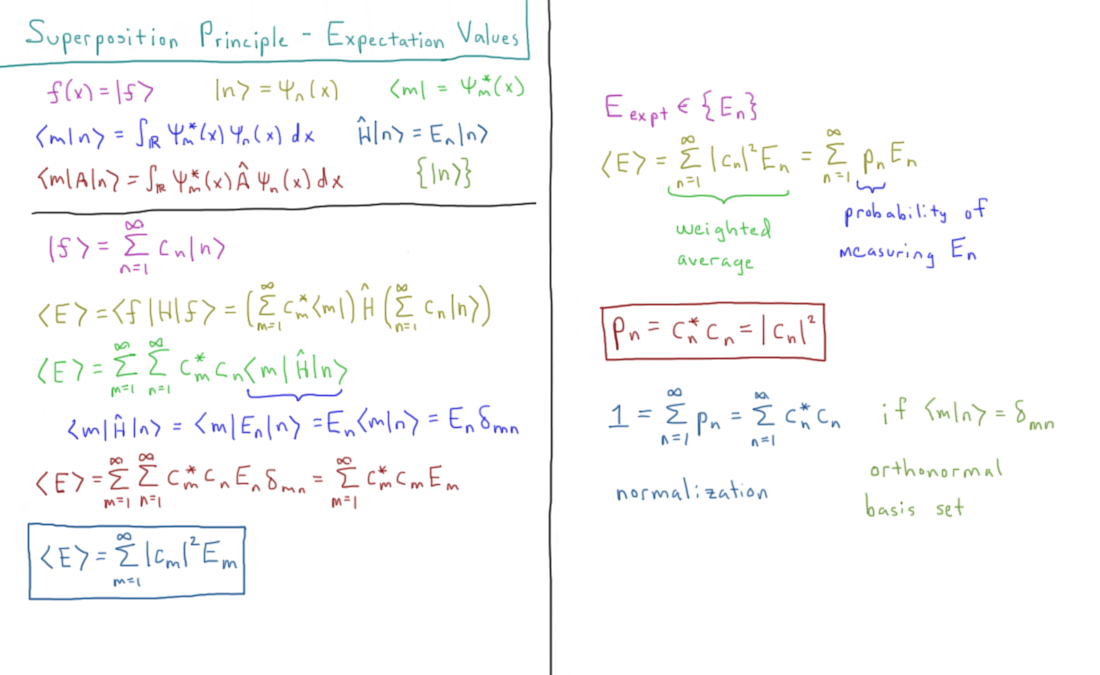 Superposition Principle - Expectation Values
f(x) = |f> |n> = Ψn(x) <m| = Ψm*(x)
<m|n> = ∫ℝ Ψm*(x) Ψn(x) dx Ĥ|n> = En|n>
<m|A|n> = ∫ℝ Ψm*(x) Â Ψn(x) dx {|n>}
|f> = ∑n=1^∞ cn|n>
<E> = <f|H|f> = (∑m=1^∞ cm*<m|) Ĥ (∑n=1^∞ cn|n>)
<E> = ∑m=1^∞ ∑n=1^∞ cm* cn <m|Ĥ|n>
<m|Ĥ|n> = <m|En|n> = En<m|n> = En δmn
<E> = ∑m=1^∞ ∑n=1^∞ cm* cn En δmn = ∑m=1^∞ cm* cm Em
<E> = ∑m=1^∞ |cm|² Em
Eexpt ∈ {En}
<E> = ∑n=1^∞ |cn|² En = ∑n=1^∞ pn En
weighted
average
probability of
measuring En
Pn = cn* cn = |cn|²
1 = ∑n=1^∞ pn = ∑n=1^∞ cn* cn if <m|n> = δmn
normalization
orthonormal
basis set